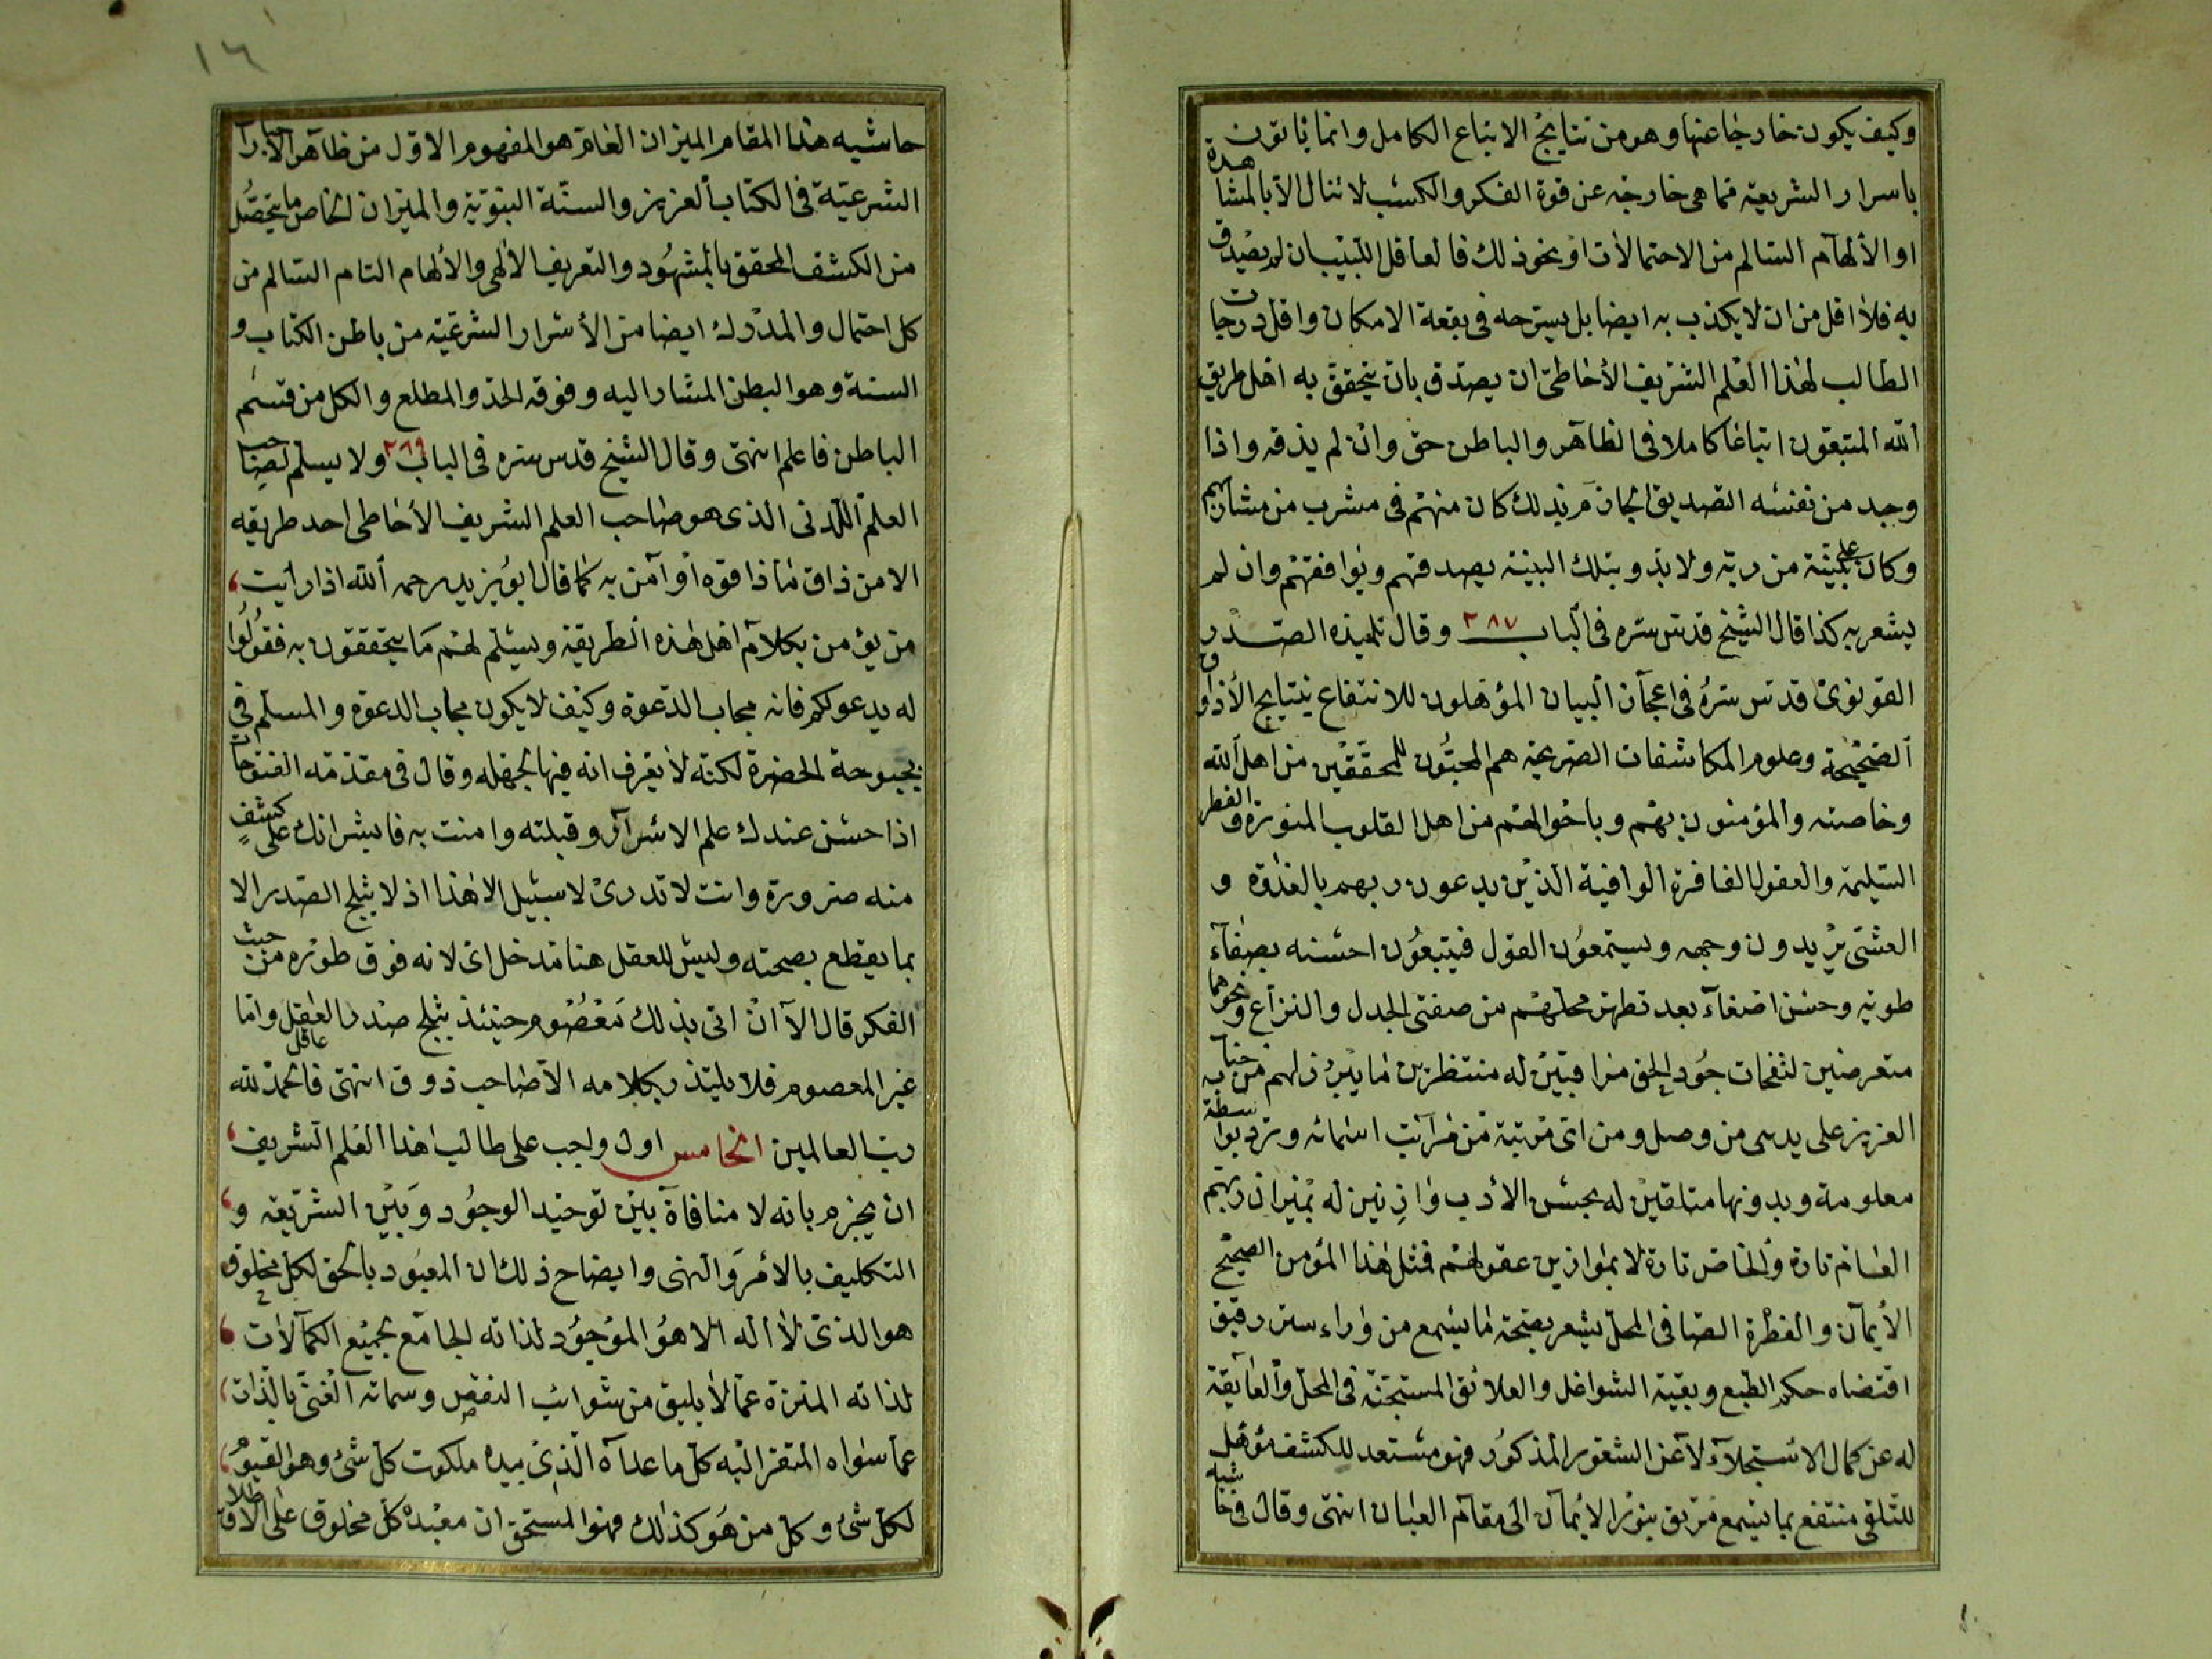 وكيف يكون خارجا عنها وهو من نتايج الاتباع الكامل وانما ياتون
باسرار الشريعة مما هي خارجة عن قوة الفكر والكسب لا تنال الا بالمشاهدة
او الالهام السالم من الاحتمالات او نحو ذلك فالعاقل اللبيب ان لم يصدق
به فلا اقل من ان لا يكذب به ايضا بل يسرحه في بقعة الامكان واقل درجات
الطالب لهذا العلم الشريف الأحاطى ان يصدق بان يتحقق به اهل طريق
الله المتبعون اتباعا كاملا في الظاهر والباطن حق وان لم يذقه واذا
وجد من نفسه التصديق الجازم بذلك كان منهم في مشرب من مشاربهم
وكان على بينة من ربه ولا بد وبتلك البينة يصدقهم ويوافقهم وان لم
يشعر به كذا قال الشيخ قدس سره في الباب ٢٨٧ وقال تلميذه الصدر
القونوى قدس سره في اعجاز البيان المؤهلون للانتفاع بنتايج الأذواق
الصحيحة وعلوم المكاشفات الصريحة هم المحبون للمحققين من اهل الله
وخاصته والمؤمنون بهم وباحوالهم من اهل القلوب المنورة والفطر
السليمة والعقول الغافرة الوافية الذين يدعون ربهم بالغدوة و
العشى يريدون وجهه ويستمعون القول فيتبعون احسنه بصفاء
طوية وحسن اصغاء بعد تطهر محلهم من صفتى الجدل والنزاع ونحوهما
متعرضين لنفحات جود الحق مراقبين له منتظرين ما يبرز لهم من جنابه
العزيز على يدى من وصل ومن اى مرتبة من مراتب اسمائه وترد بواسطة
معلومة وبدونها متلقين له بحسن الأدب وازنين له بميزان ربهم
العام تارة والخاص تارة لا بموازين عقولهم فمثل هذا المؤمن الصحيح
الأيمان والفطرة الصافى المحل يشعر بصحة ما يسمع من وراء ستر رقيق
اقتضاه حكم الطبع وبقية الشواغل والعلائق المستجنة في المحل والعايقة
له عن كمال الاستجلاء لا عن الشعور المذكور فهو مستعد للكشف مؤهل
للتلقى منتفع بما يسمع مرتق بنور الايمان الى مقام العيان انتهى وقال في حاشية
حاشيه هذا المقام الميزان العام هو المفهوم الاول من ظاهر الاخبارات
الشرعية في الكتاب العزيز والسنة النبوية والميزان الخاص ما يتحصل
من الكشف المحقق بالمشهود والتعريف الالهى والألهام التام السالم من
كل احتمال والمدرك ايضا من الأسرار الشرعية من باطن الكتاب و
السنة وهو البطن المشار اليه وفوقه الحد والمطلع والكل من قسم
الباطن فاعلم انتهى وقال الشيخ قدس سره في الباب ٢٨٩ ولا يسلم لصاحب
العلم اللدنى الذى هو صاحب العلم الشريف الأحاطى احد طريقه
الا من ذاق ما ذاقوه او آمن به كما قال ابو يزيد رحمه الله اذا رايت
من يؤمن بكلام اهل هذه الطريقة ويسلم لهم ما يتحققون به فقولوا
له يدعو لكم فانه مجاب الدعوة وكيف لا يكون مجاب الدعوة والمسلم في
بحبوحة الحضرة لكنه لا يعرف انه فيها لجهله وقال في مقدمة الفتوحات
اذا حسن عندك علم الاسرار وقبلته وامنت به فابشر انك على كشف
منه ضرورة وانت لا تدرى لا سبيل الا هذا اذ لا يثلج الصدر الا
بما يقطع بصحته وليس للعقل هنا مدخل اى لانه فوق طوره من حيث
الفكر قال الا ان اتى بذلك معصوم حينئذ يثلج صدر العاقل واما
غير المعصوم فلا يلتذ بكلامه الا صاحب ذوق انتهى فالحمد لله
رب العالمين الخامس اول واجب على طالب هذا العلم الشريف
ان يجزم بانه لا منافاة بين توحيد الوجود وبين الشريعة و
التكليف بالأمر والنهى وايضاح ذلك ان المعبود بالحق لكل مخلوق
هو الذى لا اله الا هو الموجود لذاته الجامع لجميع الكمالات
لذاته المنزه عما لا يليق من شوائب النقص وسماته الغنى بالذات
عما سواه المفتقر اليه كل ما عداه الذى بيده ملكوت كل شئ وهو القيوم
لكل شئ وكل من هو كذلك فهو المستحق ان يعبده كل مخلوق على الاطلاق